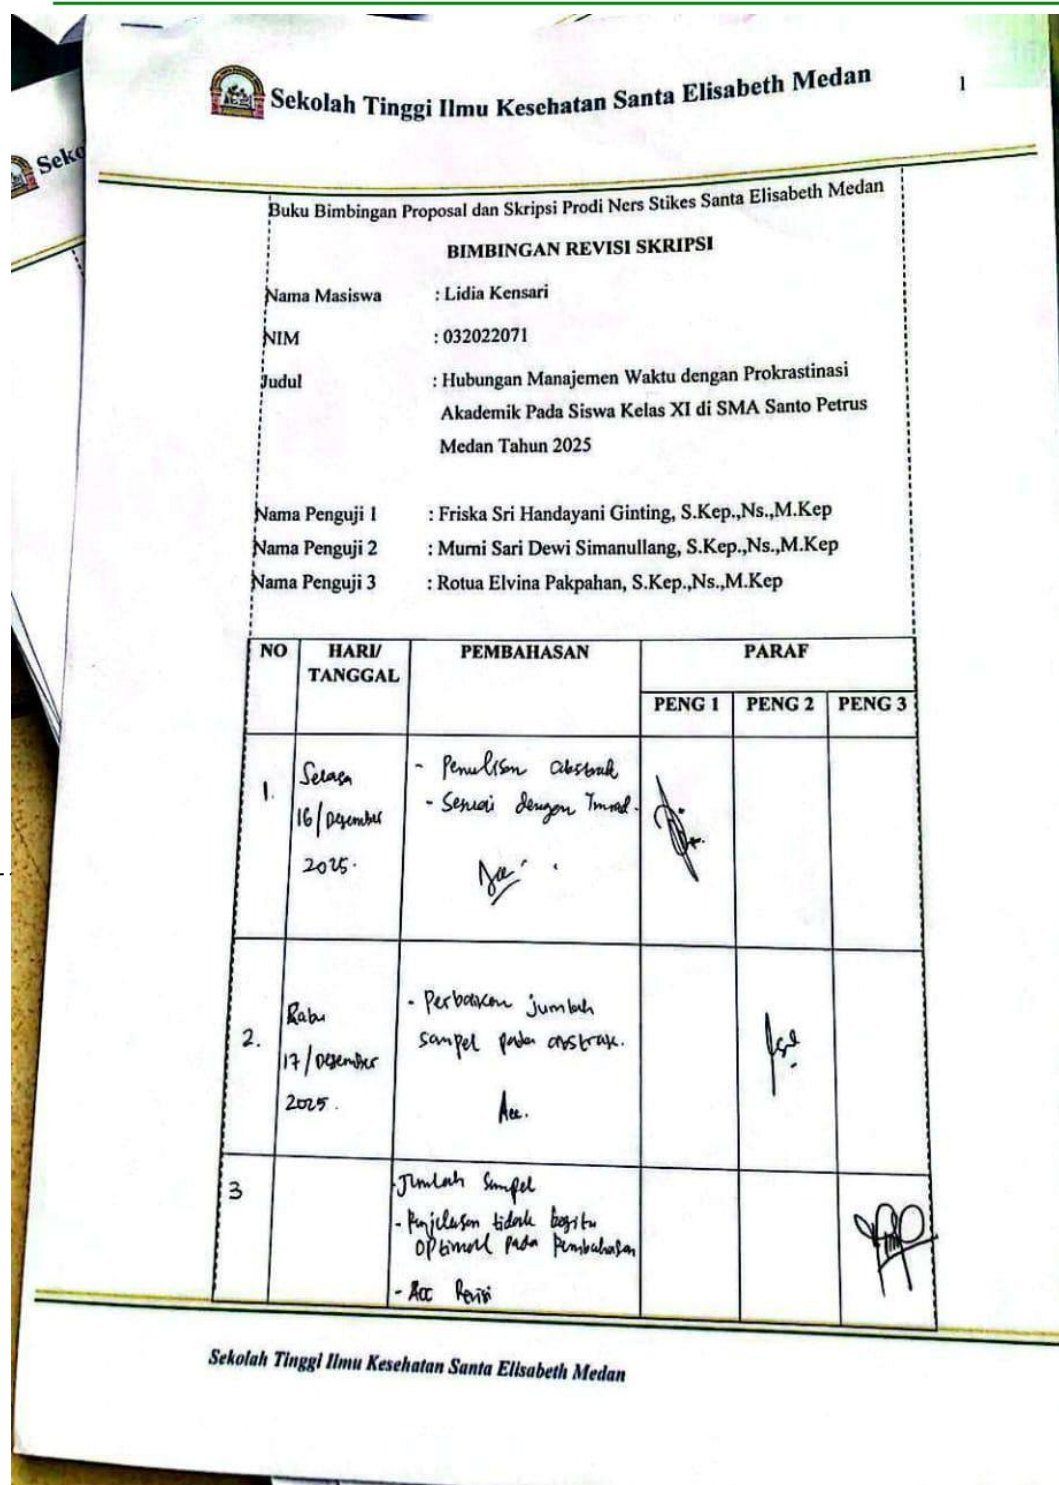 Sekolah Tinggi Ilmu Kesehatan Santa Elisabeth Medan
1
Seko
Buku Bimbingan Proposal dan Skripsi Prodi Ners Stikes Santa Elisabeth Medan
BIMBINGAN REVISI SKRIPSI
Nama Masiswa : Lidia Kensari
NIM : 032022071
Judul : Hubungan Manajemen Waktu dengan Prokrastinasi
Akademik Pada Siswa Kelas XI di SMA Santo Petrus
Medan Tahun 2025
Nama Penguji 1 : Friska Sri Handayani Ginting, S.Kep.,Ns.,M.Kep
Nama Penguji 2 : Murni Sari Dewi Simanullang, S.Kep.,Ns.,M.Kep
Nama Penguji 3 : Rotua Elvina Pakpahan, S.Kep.,Ns.,M.Kep
NO HARI/ PEMBAHASAN PARAF
TANGGAL
PENG 1 PENG 2 PENG 3
1. Selasa - Penulisan abstrak
16/Desember - Sesuai dengan Imrad.
2025. Acc
2. Rabu - Perbaikan jumlah
17/Desember sampel pada abstrak.
2025. Acc.
3 - Jumlah Sampel
- Penjelasan tidak begitu
optimal pada Pembahasan
- Acc Revisi
Sekolah Tinggi Ilmu Kesehatan Santa Elisabeth Medan